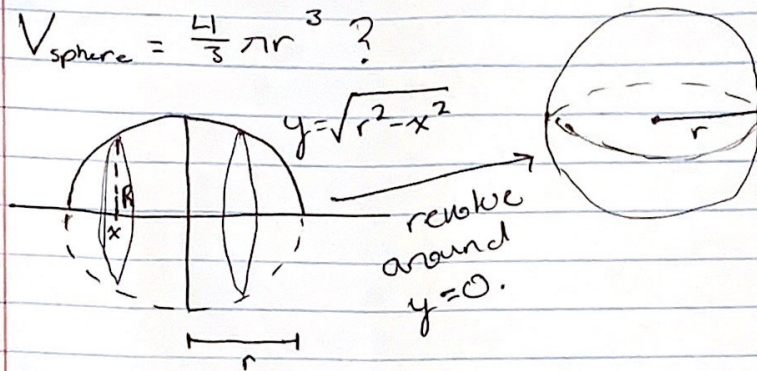 V_sphere = 4/3 πr³ ?
y=√(r²-x²)
r
R
x
revolve
around
y=0.
r